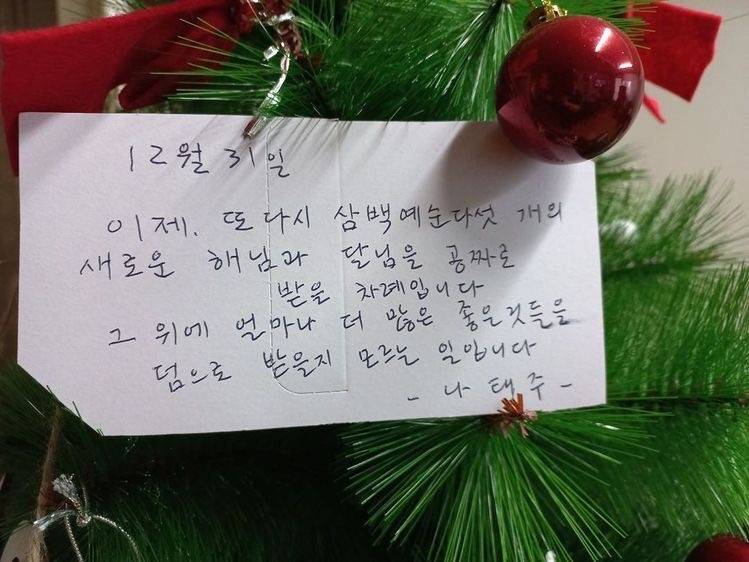 12월 31일
이제. 또다시 삼백예순다섯 개의
새로운 해님과 달님을 공짜로
받을 차례입니다
그 위에 얼마나 더 많은 좋은것들을
덤으로 받을지 모르는 일입니다
- 나태주 -